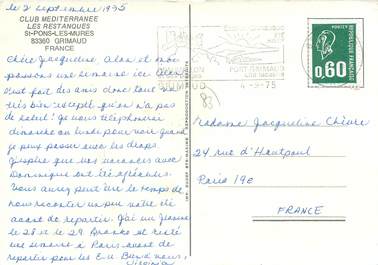 le 2 septembre 1975
CLUB MEDITERRANEE
LES RESTANQUES
St-PONS-LES-MURES
83360 GRIMAUD
FRANCE
Chère Jacqueline, Alan et moi
passons une semaine ici. Alan
s'est fait des amis donc tout va
très bien excepté qu'on n'a pas
de soleil! Je vous téléphonerai
dimanche ou lundi pour voir quand
je peux passer avec les draps.
J'espère que vos vacances avec
Dominique ont été agréables.
Vous aurez peut être le temps de
nous raconter un peu votre été
avant de repartir. J'ai un
le 28 et le 29 et reste
une semaine à Paris avant de
repartir pour les E-U. Bien à vous,
Virginia
PORT GRIMAUD
GRIMAUD
4-9-75
83
REPUBLIQUE FRANCAISE
0,60
POSTES
Madame Jacqueline Chèvre
24 rue d'Hautpoul
Paris 19e
FRANCE